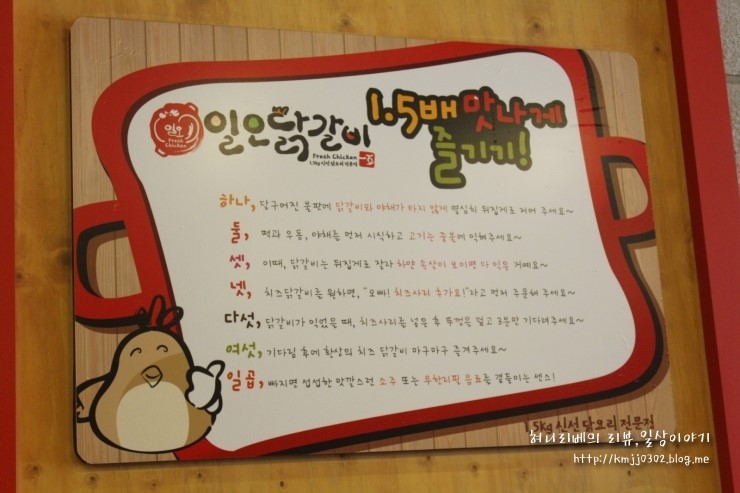 일오
Fresh
Chicken
일오닭갈비
Fresh Chicken
1.5배 맛나게
즐기기!
하나, 달구어진 불판에 닭갈비와 야채가 타지 않게 열심히 뒤집게로 저어 주세요~
둘, 떡과 우동, 야채를 먼저 시식하고 고기는 충분에 익혀주세요~
셋, 이때, 닭갈비는 뒤집게로 잘라 하얀 속살이 보이면 다 익은 거예요~
넷, 치즈닭갈비를 원하면, "오빠! 치즈사리 추가요!"라고 먼저 주문해 주세요~
다섯, 닭갈비가 익었을 때, 치즈사리를 넣은 후 뚜껑을 덮고 3분만 기다려주세요~
여섯, 기다림 후에 환상의 치즈 닭갈비 마구마구 즐겨주세요~
일곱, 빠지면 섭섭한 맛깔스런 소주 또는 무한리필 음료를 곁들이는 센스!
1.5kg 신선 닭요리 전문점
허니리베의 리뷰,일상이야기
http://kmjj0302.blog.me